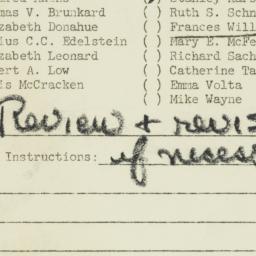 mas V. Brunkard ( ) Ruth S. Schn
zabeth Donahue ( ) Frances Will
ius C.C. Edelstein ( ) Mary E. McFe
zabeth Leonard ( ) Richard Sach
ert A. Low ( ) Catherine Ta
is McCracken ( ) Emma Volta
( ) Mike Wayne
Review + revis
Instructions: if necess